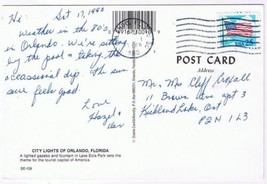 Hi Oct 17, 1990
Weather in the 80's
in Orlando. We're sitting
by the pool & taking the
occassional dip. The sun
sure feels good.
Love
Hazel &
CITY LIGHTS OF ORLANDO, FLORIDA
A lighted gazebo and fountain in Lake Eola Park sets the
theme for the tourist capital of America.
POST CARD
Address
Mr. & Mrs Cliff
11 Brown Ave apt 3
Kirkland Lake, Ont
P2N 1L3